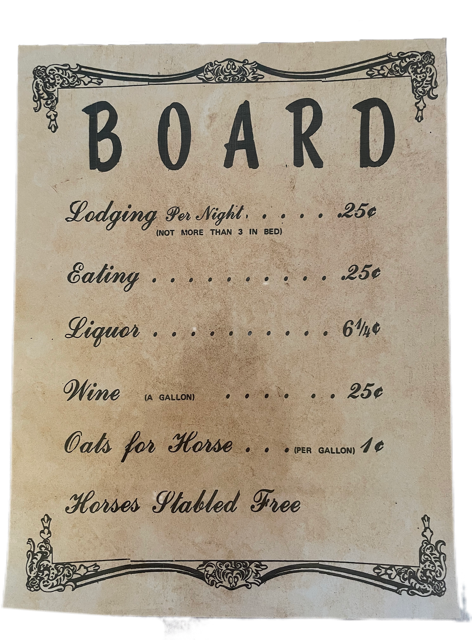 BOARD
Lodging Per Night . . . . . . .25¢
(NOT MORE THAN 3 IN BED)
Eating . . . . . . . . . . . .25¢
Liquor . . . . . . . . . . . 6¼¢
Wine (A GALLON) . . . . . . 25¢
Oats for Horse . . . (PER GALLON) 1¢
Horses Stabled Free